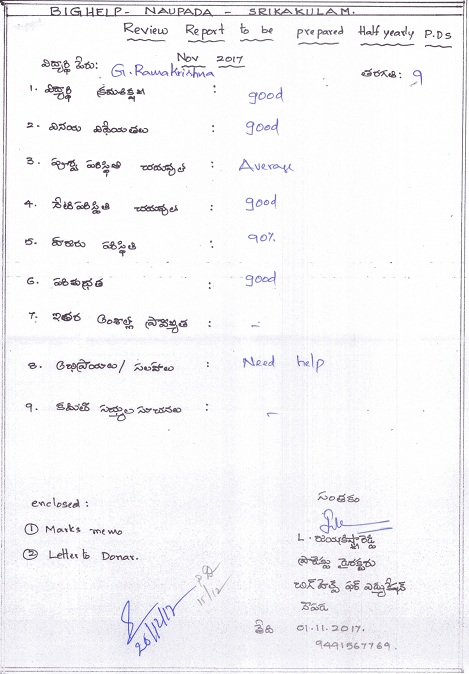 BIGHELP - NAUPADA - SRIKAKULAM.
Review Report to be prepared Half yearly P.Ds
Nov 2017
విద్యార్థి పేరు: G. Ramakrishna తరగతి: 9
1. విద్యార్థి క్రమశిక్షణ : good
2. వినయ విధేయతలు : good
3. పూర్వ పరిస్థితి చదువుల : Average
4. నేటి పరిస్థితి చదువుల : good
5. హాజరు పరిస్థితి : 90%
6. పరిశుభ్రత : good
7. ఇతర అంశాల్లో ప్రావీణ్యత : -
8. అభిప్రాయాలు/ సలహాలు : Need help
9. కమిటీ సభ్యుల సూచనలు : -
enclosed :
① Marks memo
② Letter to Donar.
సంతకం
L.
ప్రాజెక్టు డైరక్టరు
బిగ్ హెల్ప్ ఫర్ ఎడ్యుకేషన్
నౌపడ
తేది 01.11.2017.
9491567769.
26/12/17
15/12